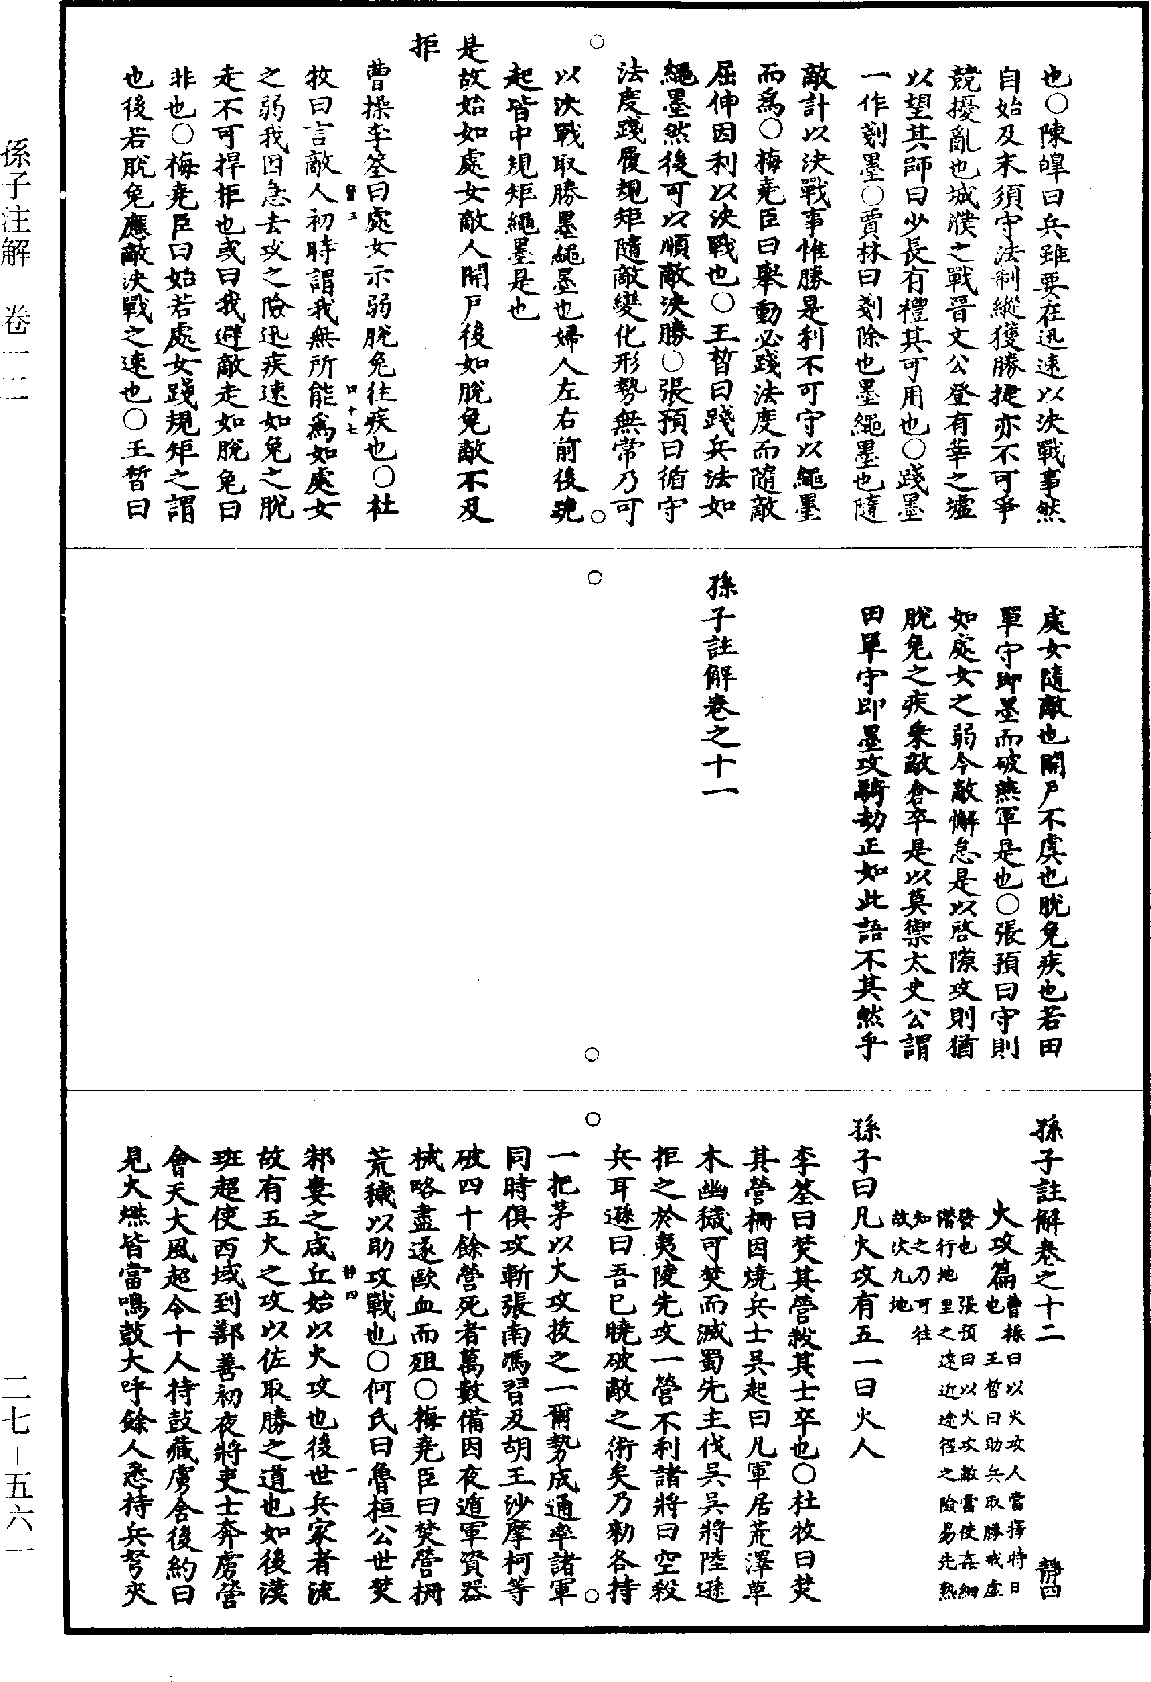 也○陳皥曰兵雖要在迅速以決戰事然
自始及末須守法制縱獲勝捷亦不可爭
競擾亂也城濮之戰晉文公登有莘之墟
以望其師曰少長有禮其可用也○踐墨
一作剗墨○賈林曰剗除也墨繩墨也隨
敵計以決戰事惟勝是利不可守以繩墨
而爲○梅堯臣曰舉動必踐法度而隨敵
屈伸因利以決戰也○王晳曰踐兵法如
繩墨然後可以順敵決勝○張預曰循守
法度踐履規矩隨敵變化形勢無常乃可
以決戰取勝墨繩墨也婦人左右前後跪
起皆中規矩繩墨是也
是故始如處女敵人開戸後如脫兔敵不及
拒
曹操李筌曰處女示弱脫兔往疾也○杜
牧曰言敵人初時謂我無所能爲如處女
之弱我因急去攻之險迅疾速如兔之脫
走不可捍拒也或曰我避敵走如脫兔曰
非也○梅堯臣曰始若處女踐規矩之謂
也後若脫兔應敵決戰之速也○王晳曰
處女隨敵也開戸不虞也脫兔疾也若田
單守即墨而破燕軍是也○張預曰守則
如處女之弱令敵懈怠是以啓隙攻則猶
脫兔之疾乘敵倉卒是以莫禦太史公謂
田單守即墨攻騎劫正如此語不其然乎
孫子註解卷之十一
孫子註解卷之十二
靜四
火攻篇
曹操曰以火攻人當擇時日
也王晳曰助兵取勝戒虛
發也張預曰以火攻敵當使姦細
潛行地里之遠近途徑之險易先熟
知之乃可往
故次九地
孫子曰凡火攻有五一曰火人
李筌曰焚其營殺其士卒也○杜牧曰焚
其營柵因燒兵士吳起曰凡軍居荒澤草
木幽穢可焚而滅蜀先主伐吳吳將陸遜
拒之於夷陵先攻一營不利諸將曰空殺
兵耳遜曰吾巳曉破敵之術矣乃勑各持
一把茅以火攻拔之一爾勢成通率諸軍
同時俱攻斬張南馮習及胡王沙摩柯等
破四十餘營死者萬數備因夜遁軍資器
械略盡遂歐血而殂○梅堯臣曰焚營柵
荒穢以助攻戰也○何氏曰魯桓公世焚
邾婁之咸丘始以火攻也後世兵家者流
故有五火之攻以佐取勝之道也如後漢
班超使西域到鄯善初夜將吏士奔虜營
會天大風超令十人持鼓藏虜舍後約曰
見火燃皆當鳴鼓大呼餘人悉持兵弩夾
孫子注解 卷一一 一二
二七－五六一
四十七
靜四
一